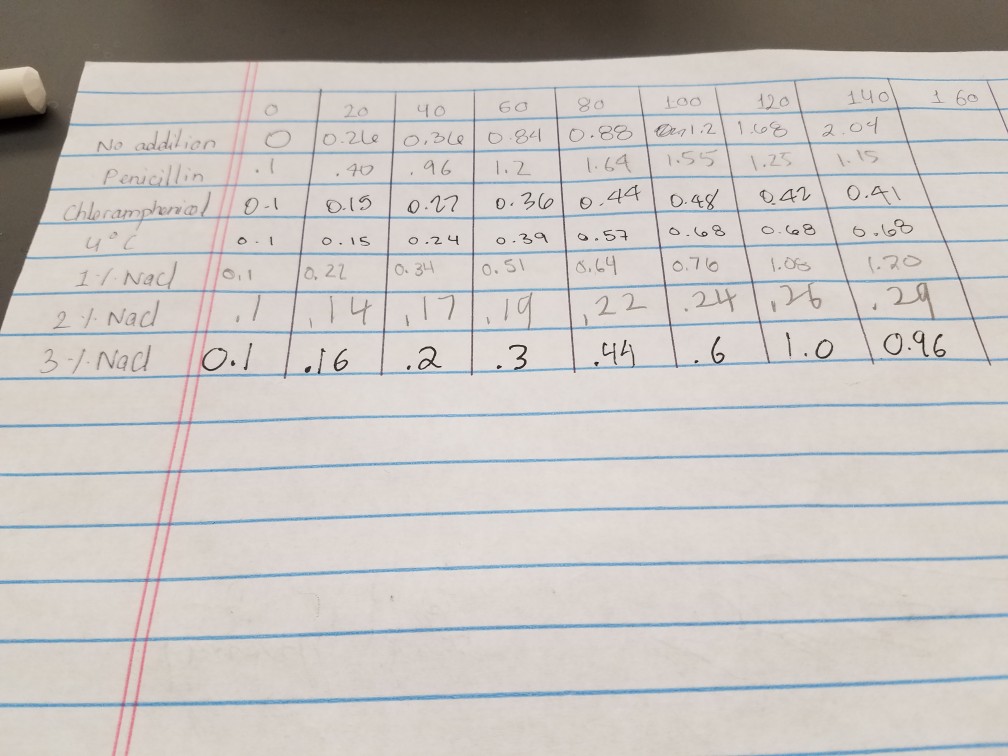 0 20 40 60 80 100 120 140 160
No addition 0 0.26 0.36 0.84 0.88 1.2 1.68 2.04
Penicillin .1 .40 .96 1.2 1.64 1.55 1.25 1.15
Chloramphenicol 0.1 0.15 0.27 0.36 0.44 0.48 0.42 0.41
4°C 0.1 0.15 0.24 0.39 0.57 0.68 0.68 0.68
1% Nacl 0.1 0.22 0.34 0.51 0.64 0.76 1.08 1.20
2% Nacl .1 .14 .17 .19 .22 .24 .26 .29
3% Nacl 0.1 .16 .2 .3 .44 .6 1.0 0.96